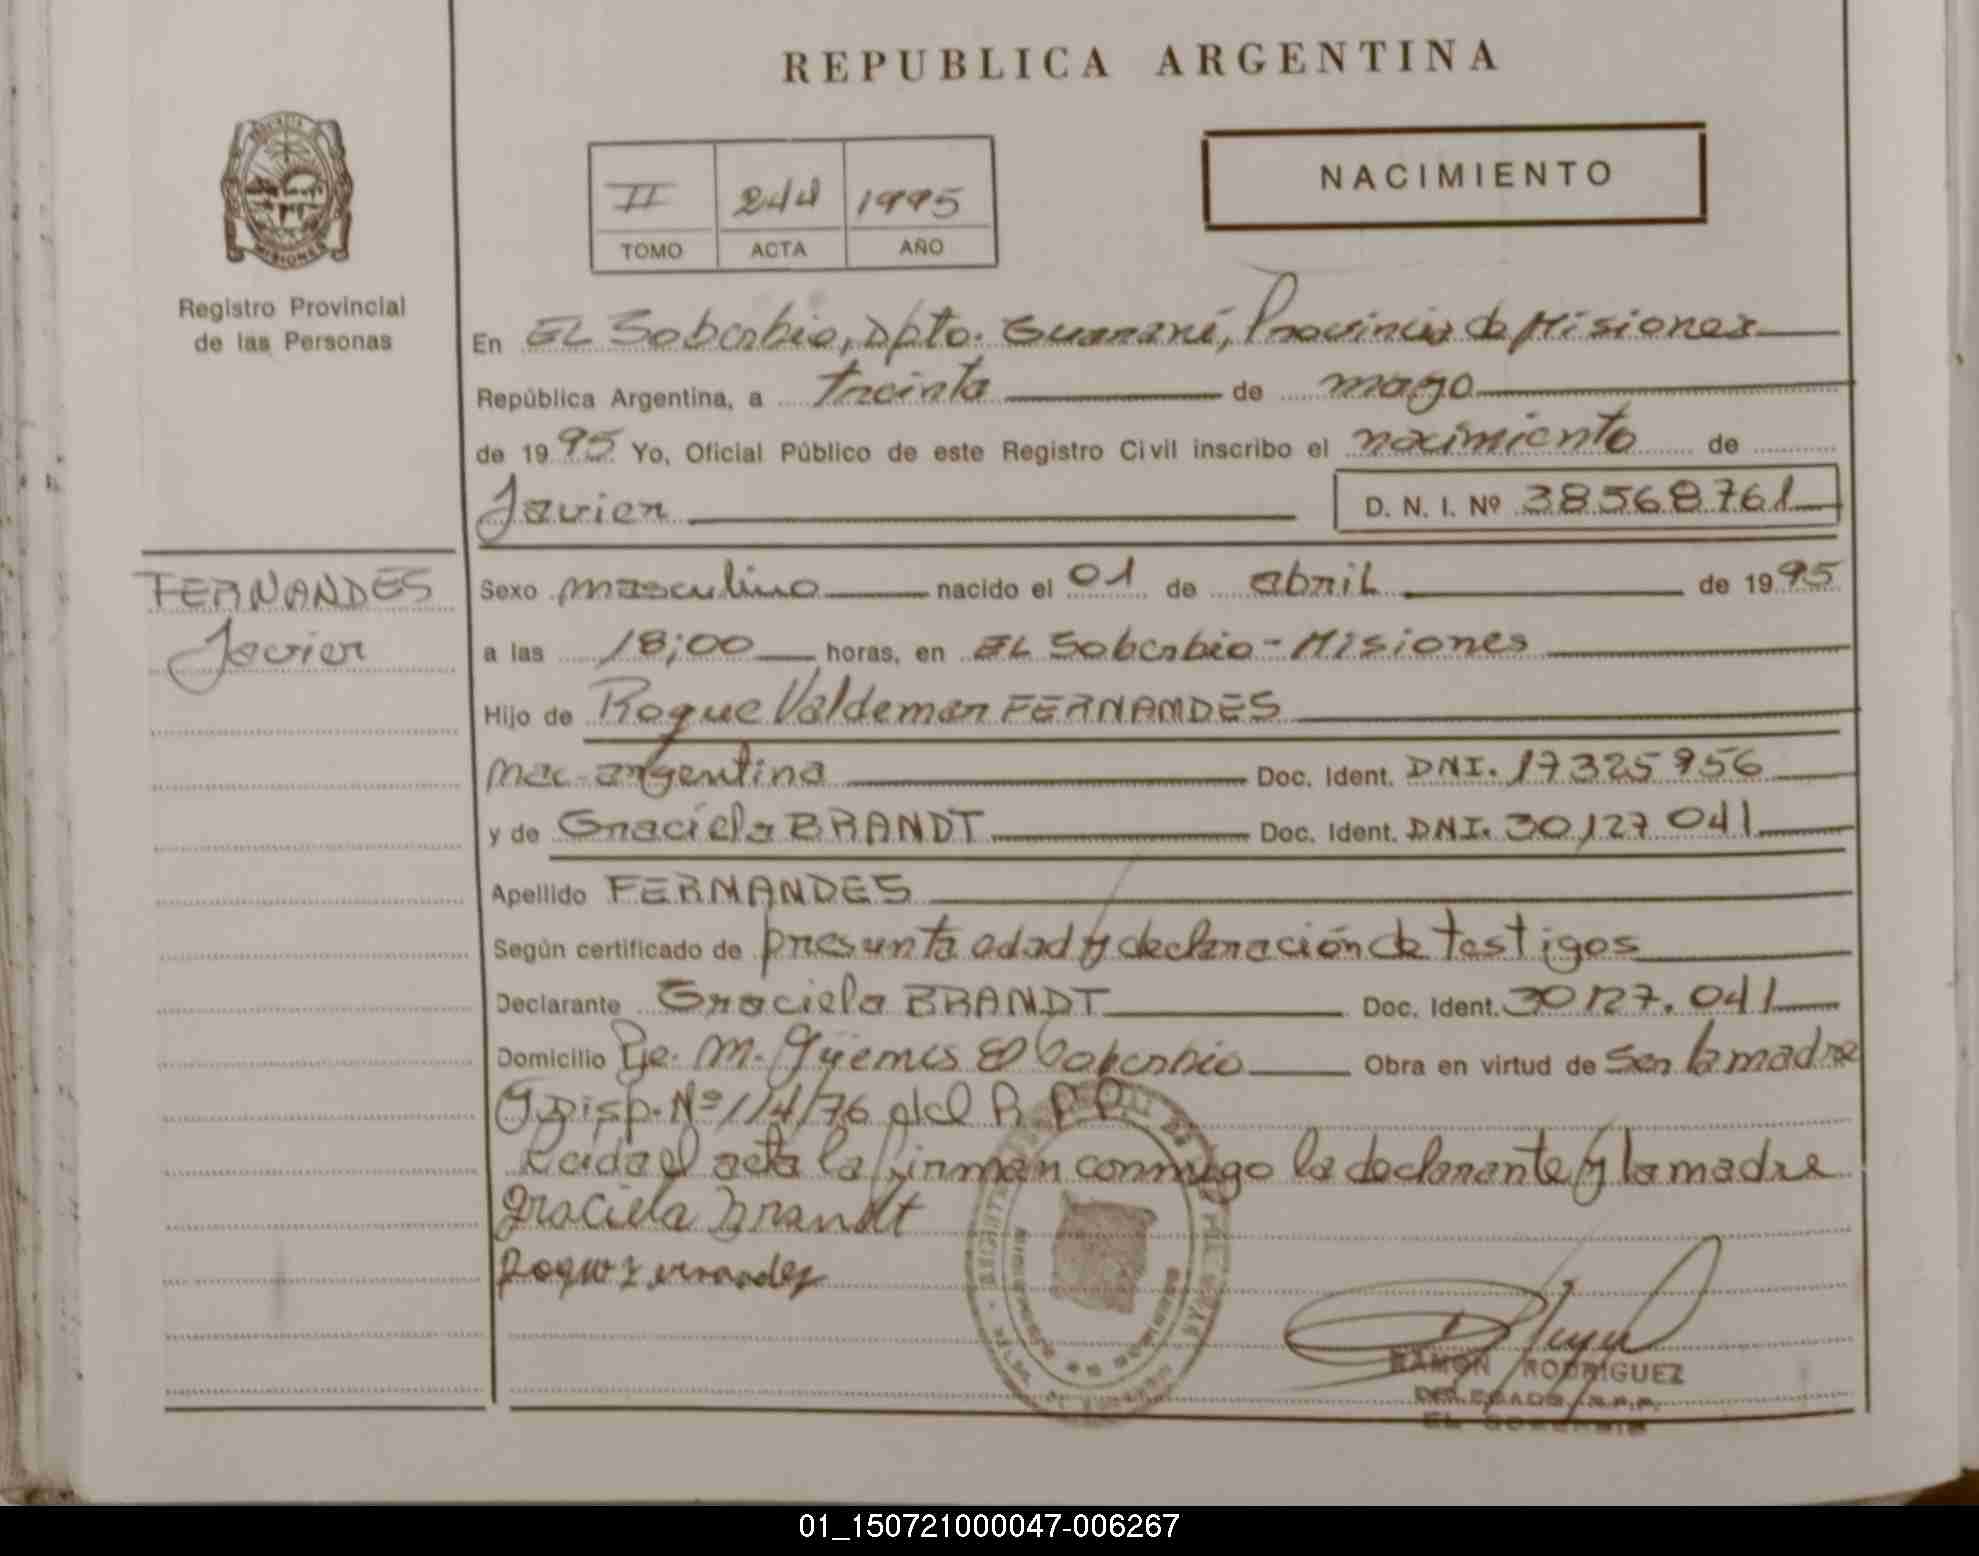 REPUBLICA ARGENTINA
PROVINCIA DE MISIONES
Registro Provincial
de las Personas
II 244 1995
TOMO ACTA AÑO
NACIMIENTO
En EL Soberbio, Dpto. Guaraní, Provincia de Misiones
República Argentina, a treinta de mayo
de 1995 Yo, Oficial Público de este Registro Civil inscribo el nacimiento de
Javier D. N. I. Nº 38568761
FERNANDES
Javier
Sexo masculino nacido el 01 de abril de 1995
a las 18;00 horas, en EL Soberbio - Misiones
Hijo de Roque Valdemar FERNANDES
Nac. argentina Doc. Ident. DNI. 17325956
y de Graciela BRANDT Doc. Ident. DNI. 30127041
Apellido FERNANDES
Según certificado de presunta edad y declaración de testigos
Declarante Graciela BRANDT Doc. Ident. 30127.041
Domicilio Pje. M. Güemes El Soberbio Obra en virtud de ser la madre
y Disp. Nº 1/4/76 del R.P.P.
Leida el acta la firman conmigo la declarante y la madre
Graciela Brandt
Roque Fernandez
RAMON RODRIGUEZ
DELEGADO R.P.P.
EL SOBERBIO
01_150721000047-006267